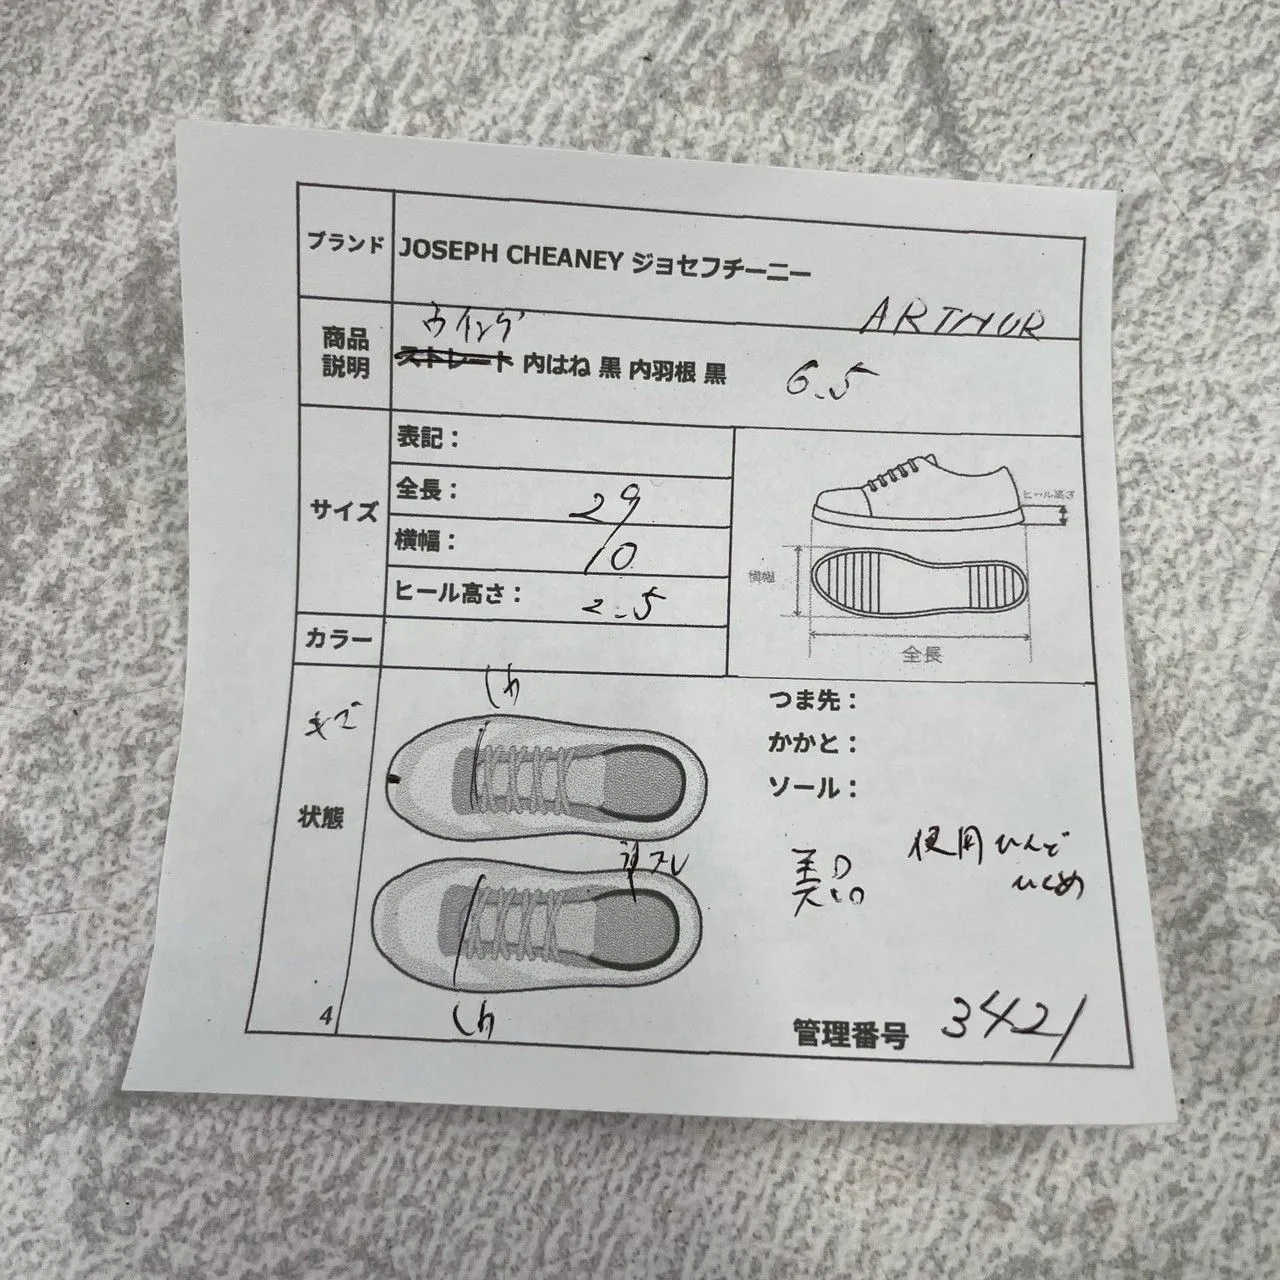 ブランド JOSEPH CHEANEY ジョセフチーニー
ARTHUR
ウイング
商品説明 ストレート 内はね 黒 内羽根 黒 6.5
サイズ
表記：
全長： 29
横幅： 10
ヒール高さ： 2.5
ヒール高さ
横幅
全長
カラー
キズ
状態
しわ
スレ
しわ
つま先：
かかと：
ソール：
美品
使用ひんど
ひくめ
4
管理番号 3421